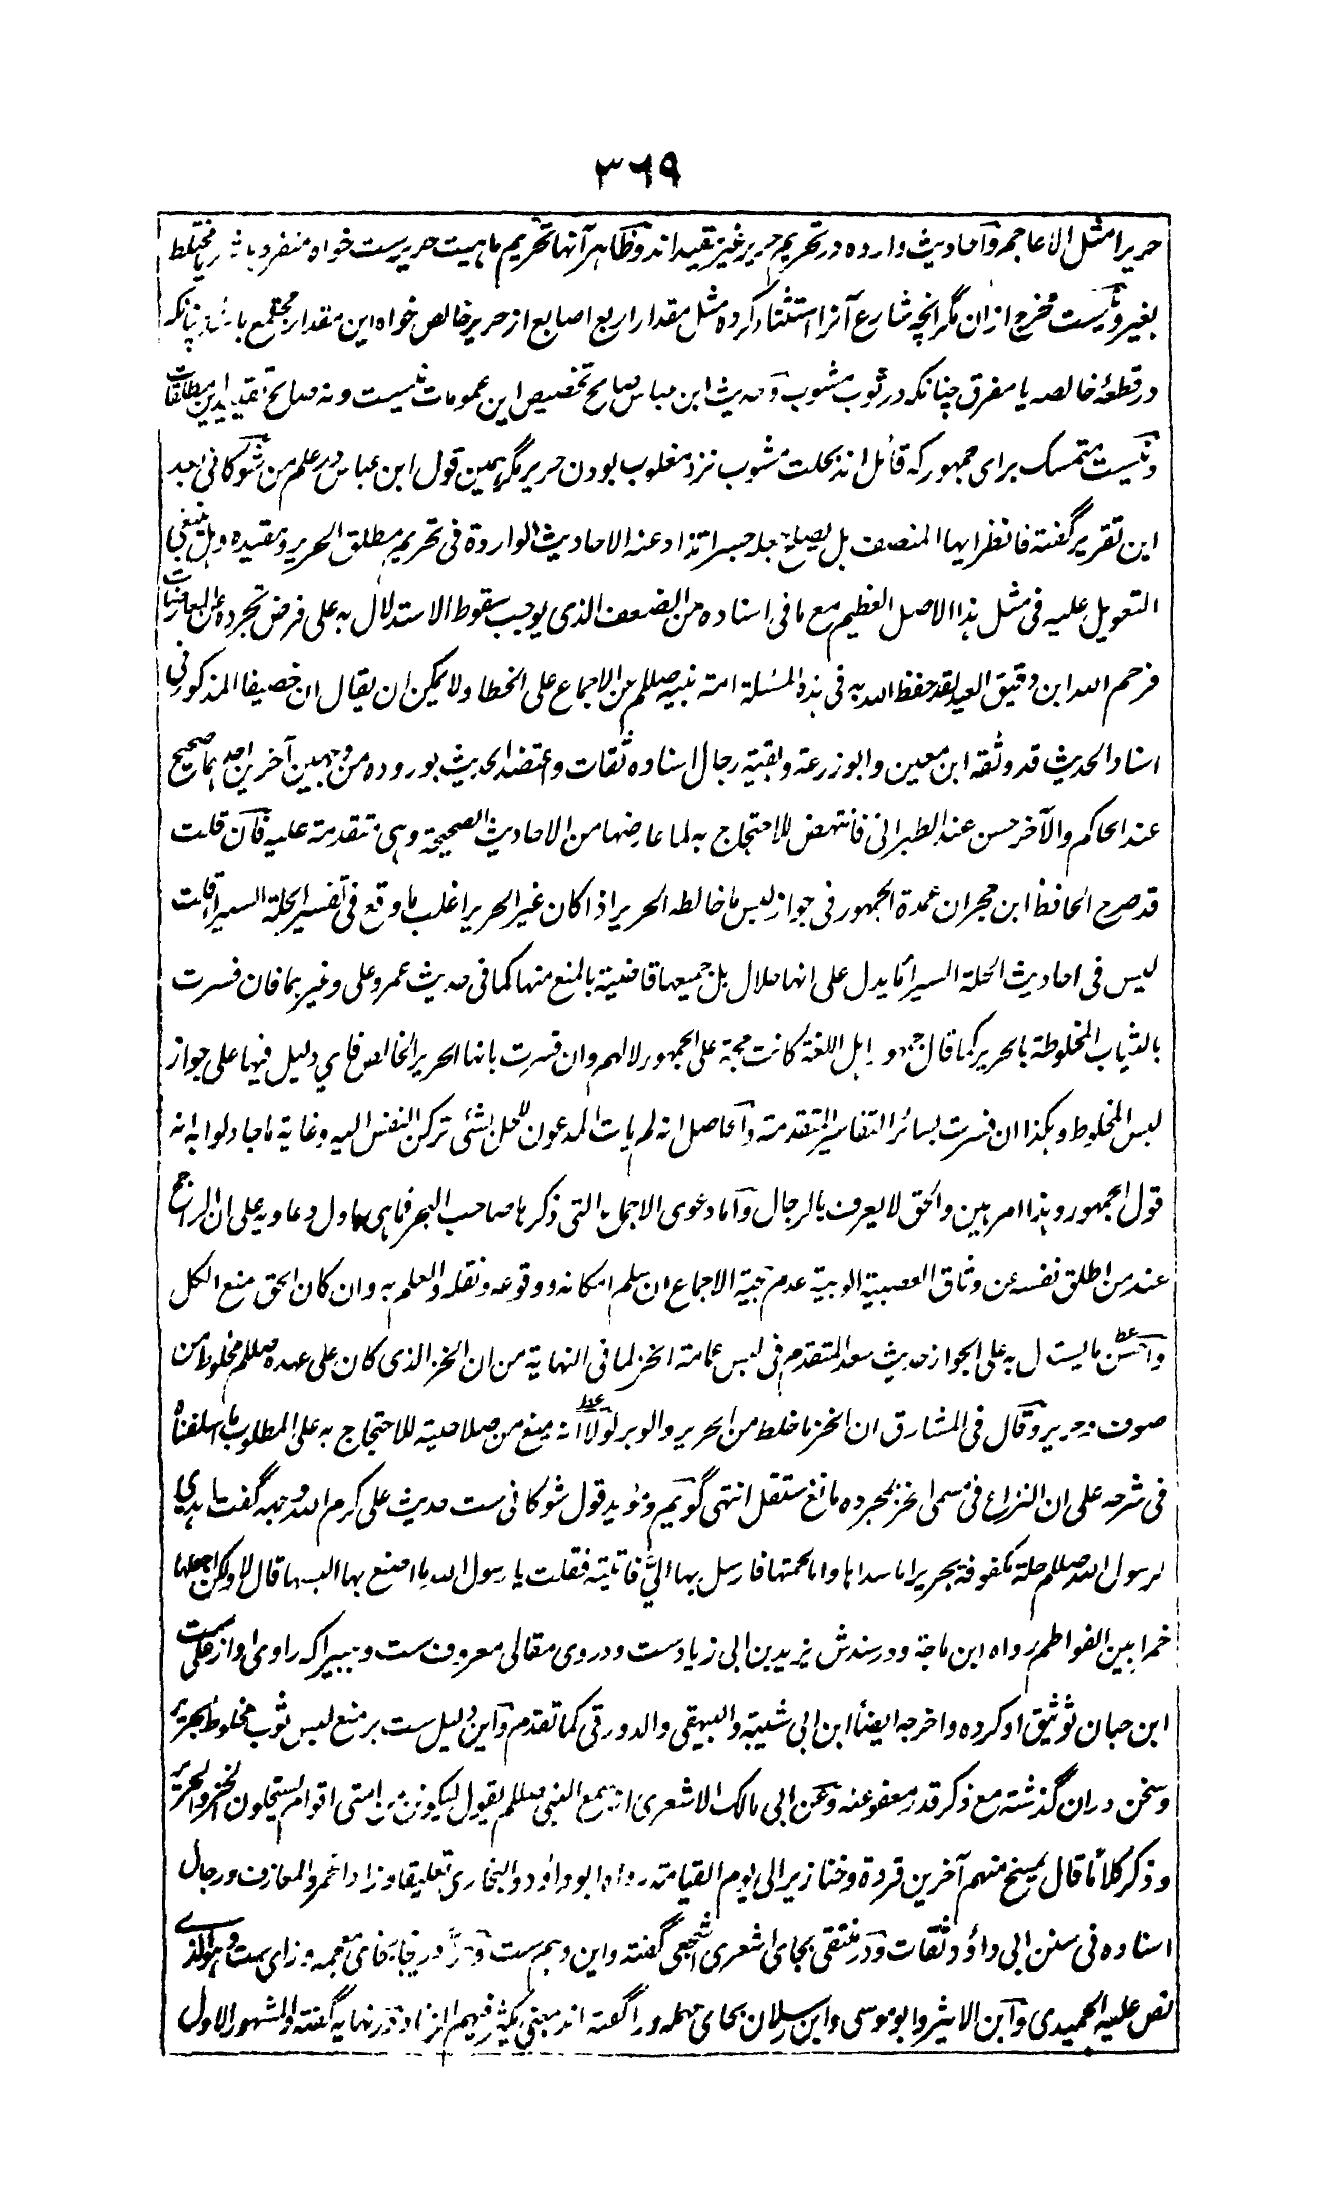 ۳۶۹
حریرا مثل الاعاجم و احادیث وارده در تحریم حریر غیر مقید اند و ظاهر آنها تحریم ماهیت حریرست خواه منفرد باشد یا مختلط
بغیر و نیست مخرج ازان مگر آنچه شارع آنرا استثناء کرده مثل مقدار اربع اصابع از حریر خالص خواه این مقدار مجتمع باشد چنانکه
در قطعهٔ خالصه یا مفرق چنانکه در ثوب مشوب و حدیث ابن عباس صالح تخصیص این عمومات نیست و نه صالح تقیید این مطلقات
و نیست متمسک برای جمهور که قائل اند بحلت مشوب نزد مغلوب بودن حریر مگر همین قول ابن عباس در علم من شوکانی بعد
این تقریر گفته فانظر ایها المنصف هل یصلح جعله جسرا تذاد عنه الاحادیث الواردة فی تحریم مطلق الحریر و مقیده و هل ینبغی
التعویل علیه فی مثل هذا الاصل العظیم مع ما فی اسناده من الضعف الذی یوجب سقوط الاستدلال به علی فرض تجرده عن المعارضات
فرحم الله ابن دقیق العید لقد حفظ الله به فی هذه المسئلة امة نبیه صللم عن الاجماع علی الخطا و لا یمکن ان یقال ان خصیفا المذکور فی
اسناد الحدیث قد وثقه ابن معین و ابو زرعة و بقیة رجال اسناده ثقات و اعتضد الحدیث بوروده من وجهین آخرین احدهما صحیح
عند الحاکم و الآخر حسن عند الطبرانی فانتهض للاحتجاج به لما عارضها من الاحادیث الصحیحة و هی متقدمة علیه فان قلت
قد صرح الحافظ ابن حجر ان عمدة الجمهور فی جواز لبس ما خالطه الحریر اذا کان غیر الحریر اغلب ما وقع فی تفسیر الحلة السیراء قلت
لیس فی احادیث الحلة السیراء ما یدل علی انها حلال بل جمیعها قاضیة بالمنع منها کما فی حدیث عمر و علی و غیرهما فان فسرت
بالثیاب المخلوطة بالحریر کما قال جمهور اهل اللغة کانت حجة علی الجمهور لا لهم و ان فسرت بانها الحریر الخالص فای دلیل فیها علی جواز
لبس المخلوط و هکذا ان فسرت بسائر التفاسیر المتقدمة و الحاصل انه لم یات المدعون للحل بشئ ترکن النفس الیه و غایة ما جادلوا به انه
قول الجمهور و هذا امر هین و الحق لا یعرف بالرجال و اما دعوی الاجماع التی ذکرها صاحب البحر فما هی باول دعاویه علی ان الراجح
عند من اطلق نفسه عن وثاق العصبیة الوبیة عدم حجیة الاجماع ان سلم امکانه و وقوعه و نقله و العلم به و ان کان الحق منع الکل
و احسن ما یستدل به علی الجواز حدیث سعد المتقدم فی لبس عمامة الخز لما فی النهایة من ان الخز الذی کان علی عهده صللم مخلوط من
صوف و حریر و قال فی المشارق ان الخز ما خلط من الحریر و الوبر لولا انه یمنع من صلاحیته للاحتجاج به علی المطلوب ما اسلفناه
فی شرحه علی ان النزاع فی مسمی الخز بمجرده مانع مستقل انتهی گویم و مؤید قول شوکانی ست حدیث علی کرم الله وجهه گفت اهدی
لرسول الله صللم حلة مکفوفة بحریر اما سداها و اما لحمتها فارسل بها الیّ فاتیته فقلت یا رسول الله ما اصنع بها البسها قال لا و لکن اجعلها
خمرا بین الفواطم رواه ابن ماجة و در سندش یزید بن ابی زیادست و در وی مقالی معروف ست و هبیرا که راوی او از علی ست
ابن حبان توثیق او کرده و اخرجه ایضا ابن ابی شیبة و البیهقی و الدورقی کما تقدم و این دلیل ست بر منع لبس ثوب مخلوط بحریر
و سخن دران گذشته مع ذکر قدر معفو عنه و عن ابی مالک الاشعری انه سمع النبی صللم یقول لیکونن من امتی اقوام یستحلون الخز و الحریر
و ذکر کلاما قال یمسخ منهم آخرین قردة و خنازیر الی یوم القیامة رواه ابو داود و البخاری تعلیقا و زاد الخمر و المعازف و رجال
اسناده فی سنن ابی داؤد ثقات و در منتقی بجای اشعری اشجعی گفته و این وهم ست و خز در ینجا بخای معجمه و زای ست و هو الذی
نص علیه الحمیدی و ابن الاثیر و ابو موسی و ابن رسلان بحای مهمله و را گفته اند بمعنی در نهایه گفته و المشهور الاول